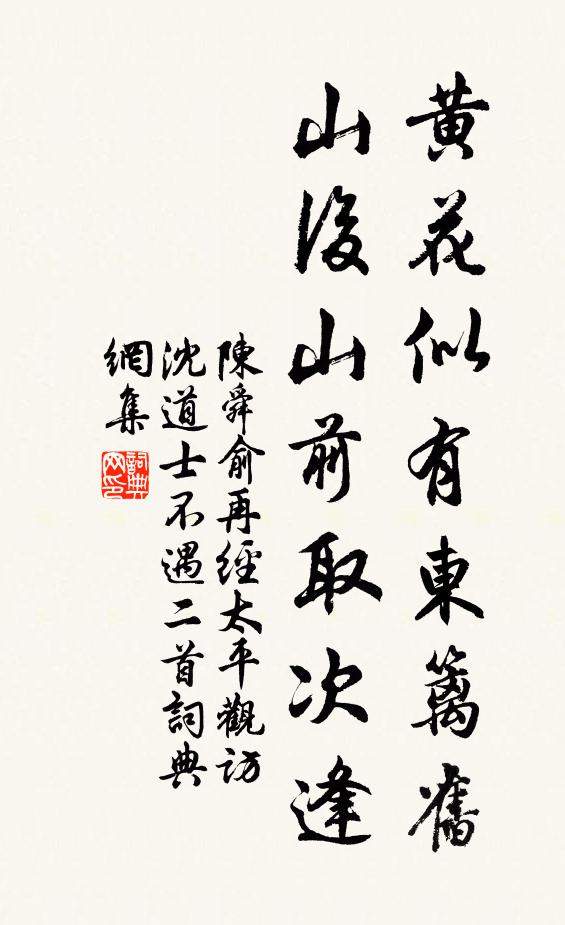 黄花似有東籬舊
山後山前取次逢
陳舜俞再經太平觀訪
沈道士不遇二首詞典
網集
詞典
网印